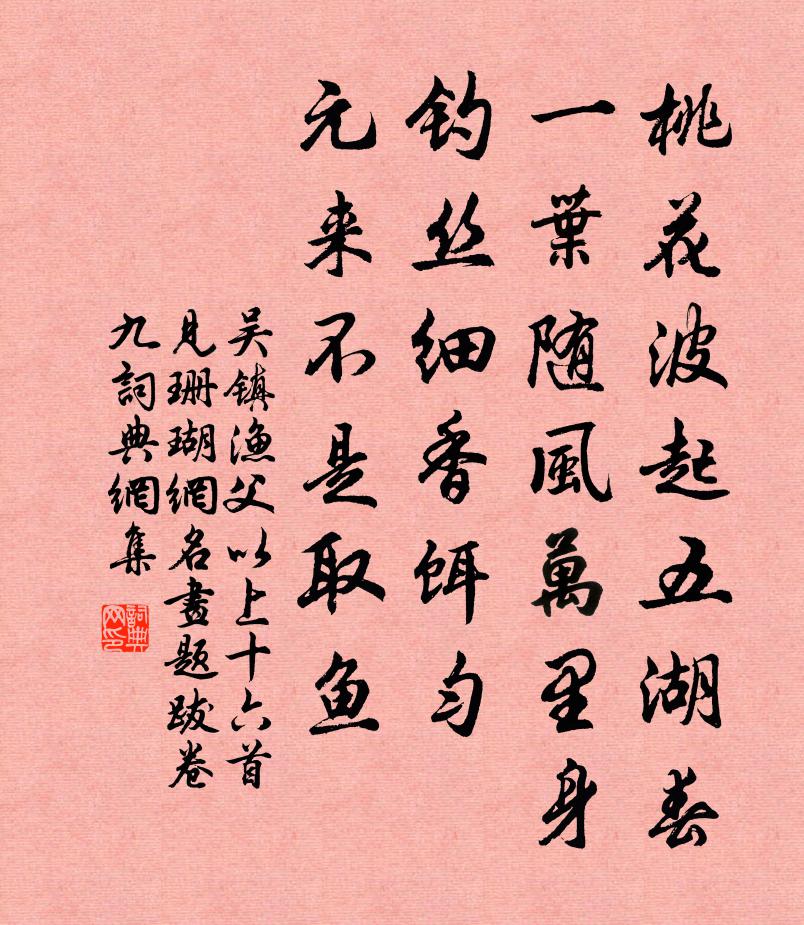 桃花波起五湖春
一葉随風萬里身
钓丝细香饵匀
元来不是取鱼
吴镇渔父以上十六首
见珊瑚網名畫题跋卷
九詞典網集
詞典网印